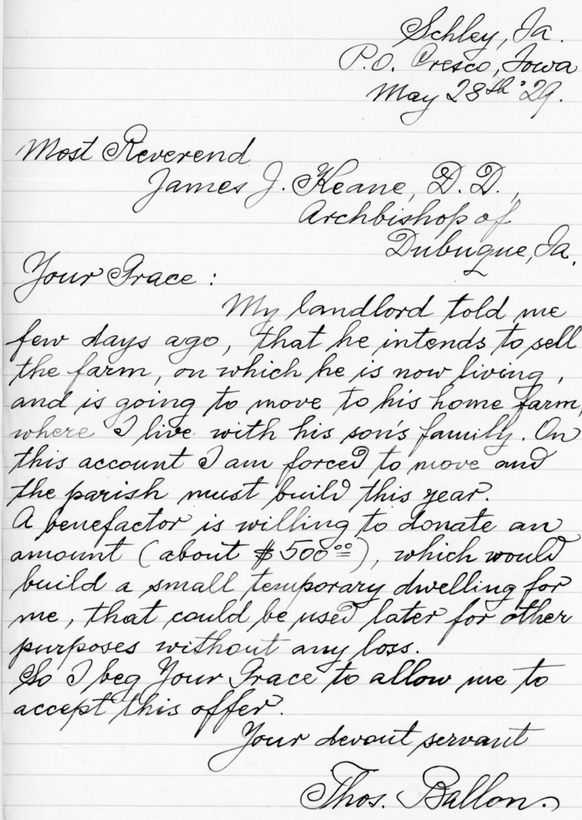 Schley, Ia.
P.O. Cresco, Iowa
May 28th '29.
Most Reverend
James J. Keane, D.D.,
Archbishop of
Dubuque, Ia.
Your Grace :
My landlord told me
few days ago, that he intends to sell
the farm, on which he is now living,
and is going to move to his home farm,
where I live with his son's family. On
this account I am forced to move and
the parish must build this year.
A benefactor is willing to donate an
amount (about $500.00), which would
build a small temporary dwelling for
me, that could be used later for other
purposes without any loss.
So I beg Your Grace to allow me to
accept this offer.
Your devout servant
Thos. Ballon.